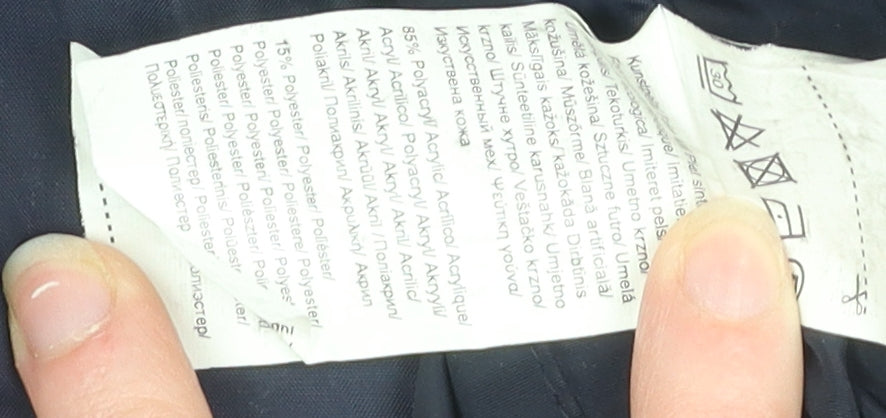 30
Pie/ sint
Kunstnn
ologica/ Imiteret pels
Tekoturkis/ Umetno krzno/
Umělá kožešina/ Sztuczne futro/ Umelá
kožušina/ Műszőrme/ Blană artificială/
Mākslīgais kažoks/ Kažokāda Dirbtinis
kailis/ Sünteetiline karusnahk/ Umjetno
krzno/ Штучне хутро/ Veštačko krzno/
Искусственный мех/ Ψεύτικη γούνα/
Изкуствена кожа
85% Polyacryl/ Acrylic/ Acrílico/ Acrylique/
Acryl/ Acrilico/ Polyacryl/ Akryl/ Akryyli/
Akryl/ Akryl/ Akryl/ Akril/ Acrilic/
Akrils/ Akrilinis/ Akrüül/ Akril/ Поліакрил/
Poliakril/ Полиакрил/ Ακρυλική/ Акрил
15% Polyester/ Polyester/ Poliéster/
Polyester/ Polyester/ Poliestere/ Polyester/
Polyester/ Polyesteri/ Poliester/
Polyester/ Polyester/ Poliészter/
Poliesteris/ Poliesterinis/
Poliester/поліестер/ Poliester
Πολυεστερική/ Полиестер